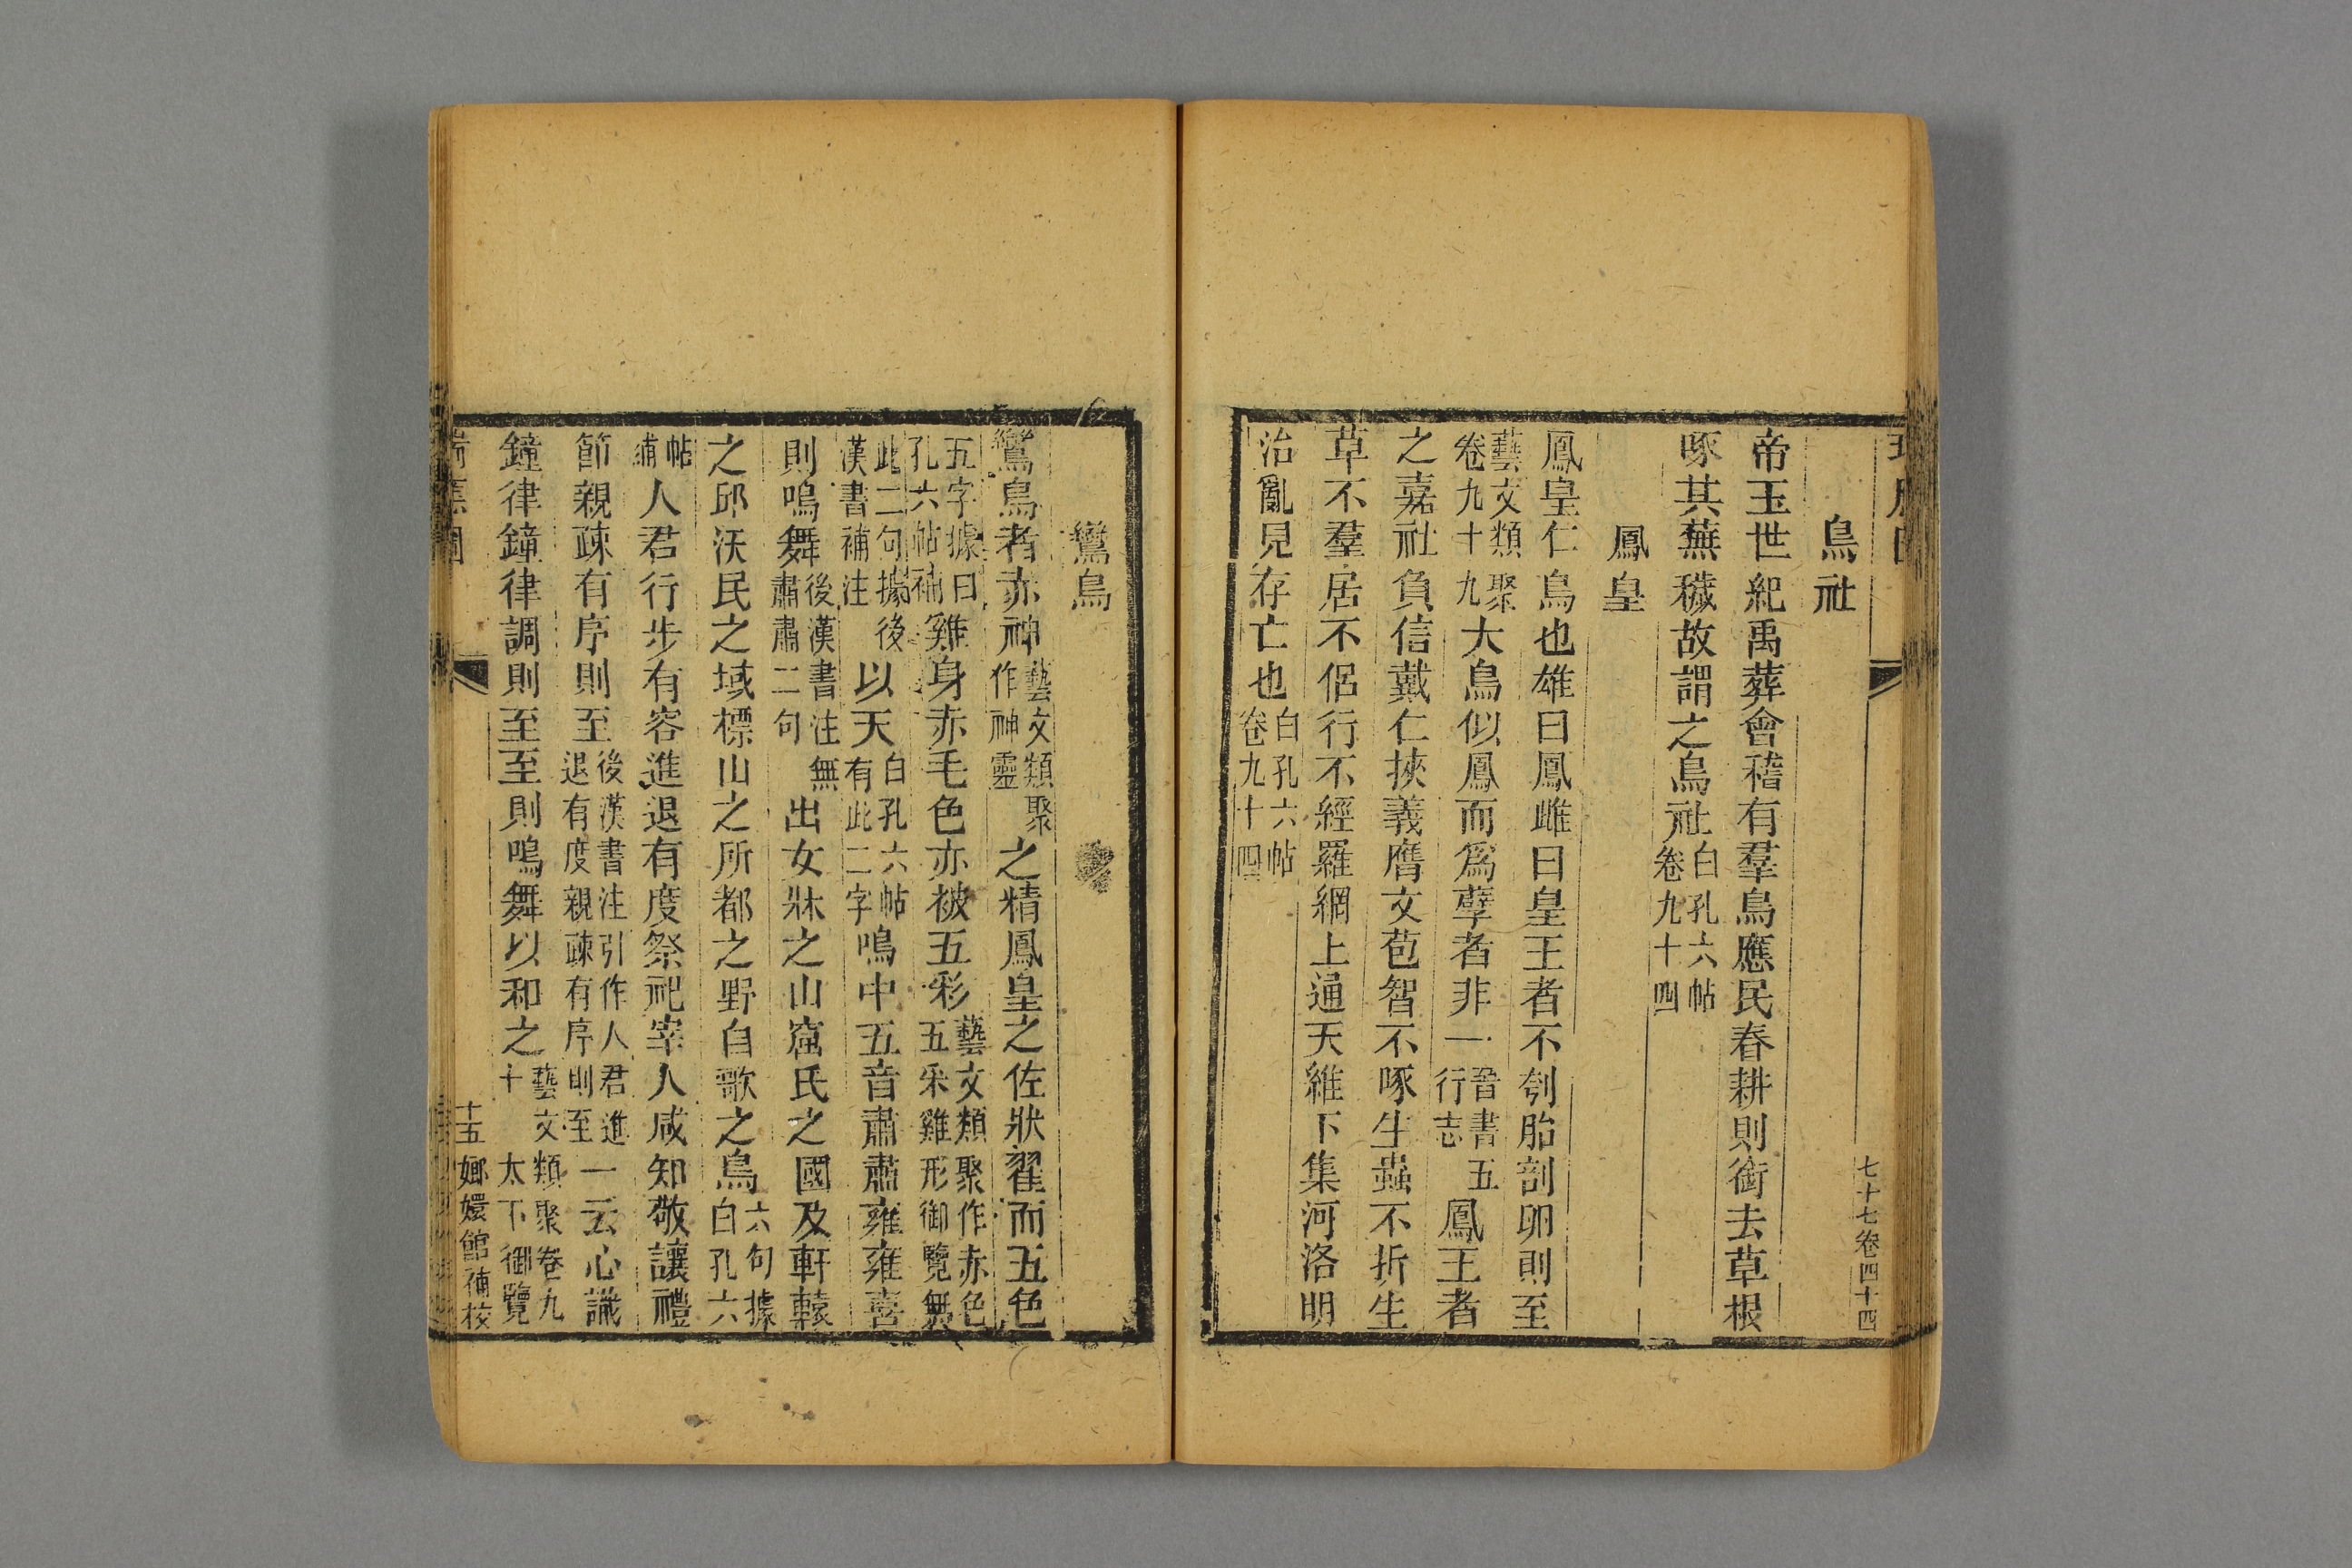 七十七卷四十四
鳥社
帝王世紀禹葬會稽有羣鳥應民春耕則銜去草根
啄其蕪穢故謂之鳥社白孔六帖卷九十四
鳳皇
鳳皇仁鳥也雄曰鳳雌曰皇王者不刳胎剖卵則至
藝文類聚卷九十九大鳥似鳳而爲孽者非一晉書五行志鳳王者
之嘉祉負信戴仁挾義膺文苞智不啄生蟲不折生
草不羣居不侶行不經羅網上通天維下集河洛明
治亂見存亡也白孔六帖卷九十四
鸞鳥
鸞鳥者赤神藝文類聚作神靈之精鳳皇之佐狀翟而五色
五字據白孔六帖補雞身赤毛色亦被五彩藝文類聚作赤色五采雞形御覽無
此二句據後漢書補注以天白孔六帖有此二字鳴中五音肅肅雍雍喜
則鳴舞後漢書注無肅肅二句出女牀之山窟氏之國及軒轅
之邱沃民之域標山之所都之野自歌之鳥六句據白孔六
帖補人君行步有容進退有度祭祀宰人咸知敬讓禮
節親疎有序則至後漢書注引作人君進退有度親疎有序則至一云心識
鐘律鐘律調則至至則鳴舞以和之藝文類聚卷九十太下御覽
十五
嫏嬛館補校